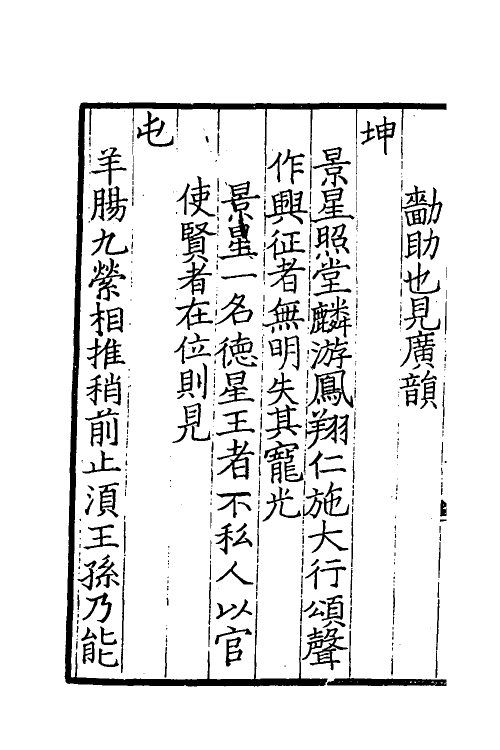 勴助也見廣韻
坤
景星照堂麟游鳳翔仁施大行頌聲
作興征者無明失其寵光
景星一名德星王者不私人以官
使賢者在位則見
屯
羊腸九縈相推稍前止須王孫乃能